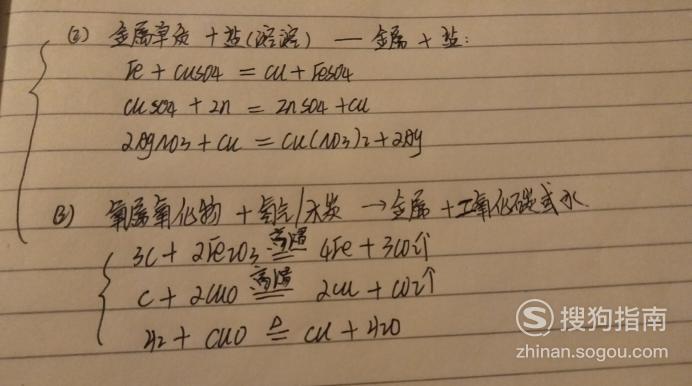 (2) 金属单质 + 盐(溶液) — 金属 + 盐:
Fe + CuSO4 = Cu + FeSO4
CuSO4 + Zn = ZnSO4 + Cu
2AgNO3 + Cu = Cu(NO3)2 + 2Ag
(3) 金属氧化物 + 氢气/木炭 → 金属 + 二氧化碳或水
3C + 2Fe2O3 高温 = 4Fe + 3CO2↑
C + 2CuO 高温 = 2Cu + CO2↑
H2 + CuO △ = Cu + H2O
S 搜狗指南
zhinan.sogou.com